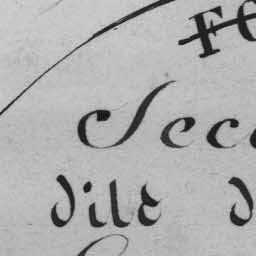 Fo
Seco
dile d